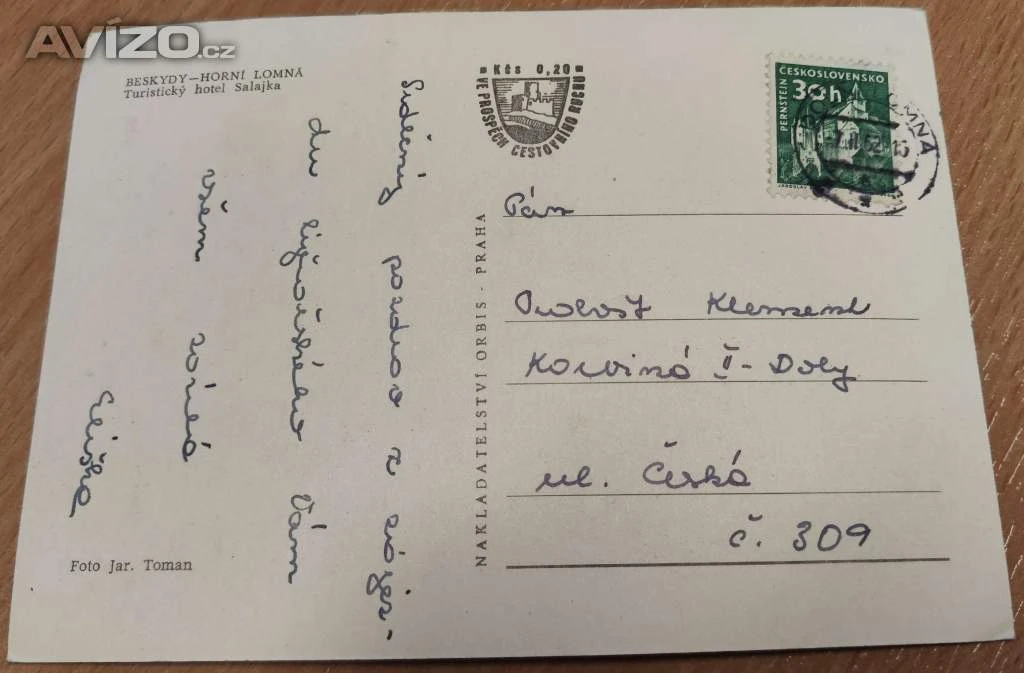 AVÍZO.cz
BESKYDY—HORNÍ LOMNÁ
Turistický hotel Salajka
Srdečný pozdrav z zájez-
du lyžařského Vám
všem zasílá
Eliška
Foto Jar. Toman
NAKLADATELSTVÍ ORBIS - PRAHA
Kčs 0,20
VE PROSPĚCH CESTOVNÍHO RUCHU
ČESKOSLOVENSKO
30h
PERNŠTEJN
LOMNÁ
Pán
Klement
Karviná II - Doly
ul. Česká
č. 309